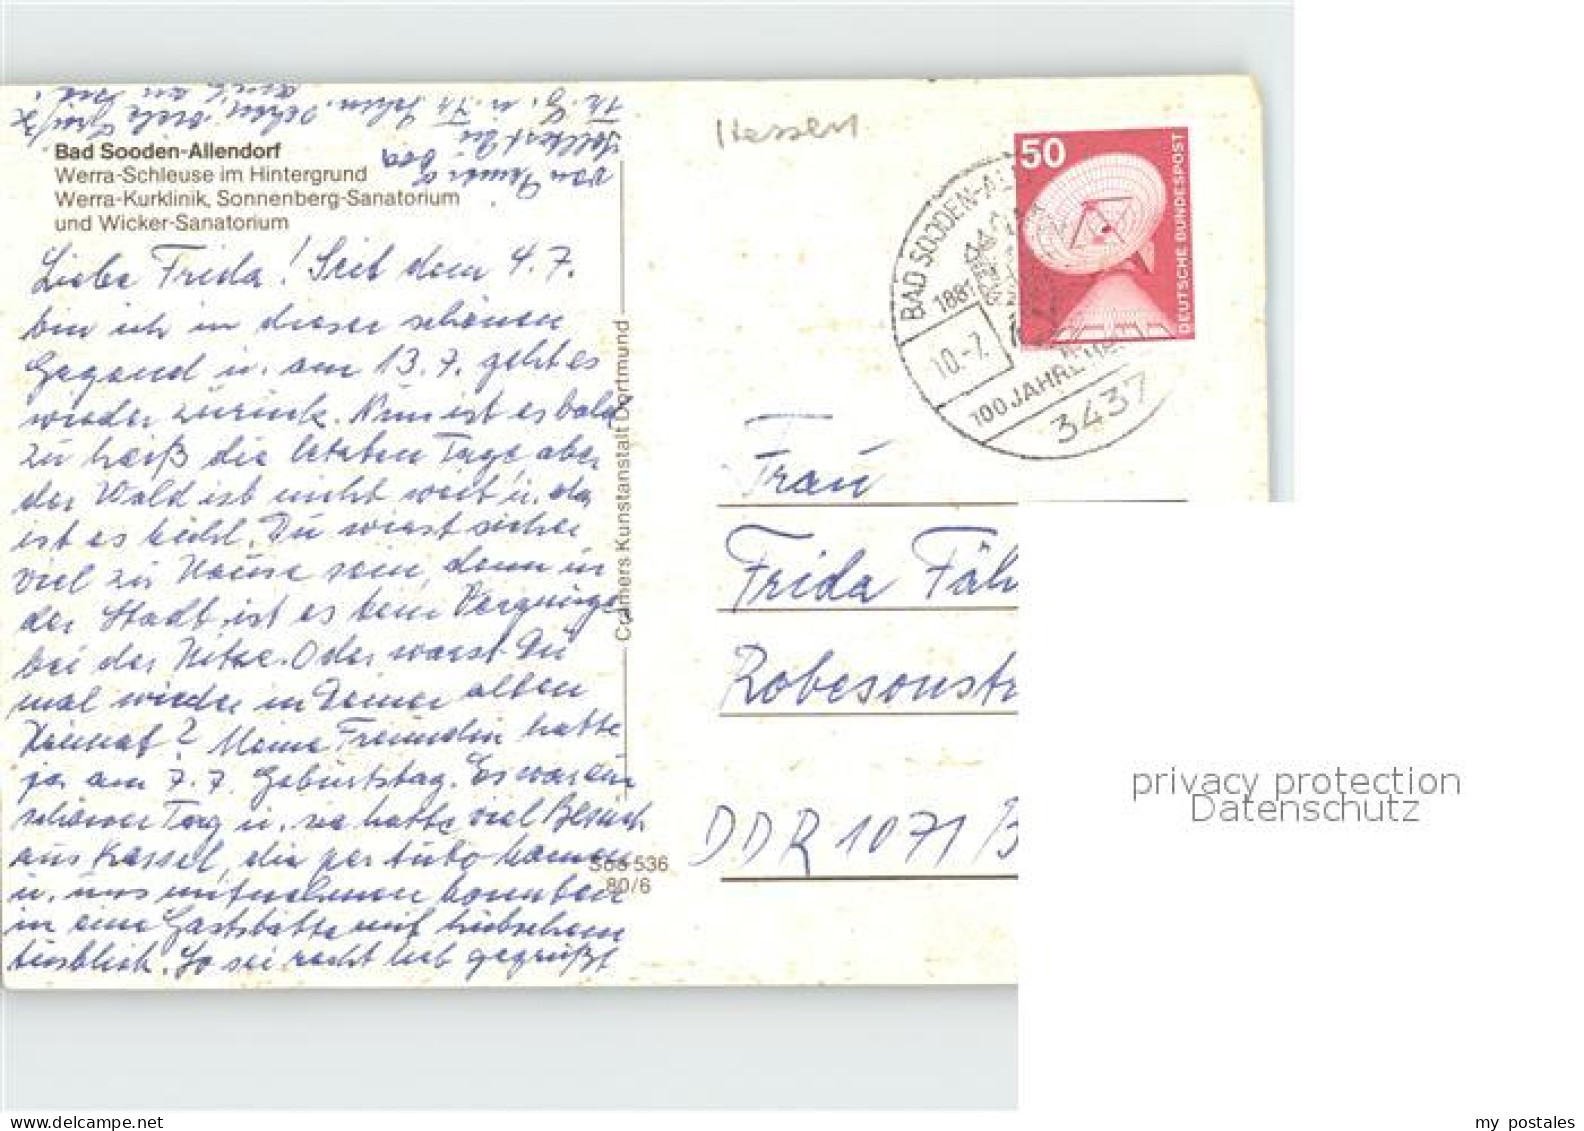 Bad Sooden-Allendorf
Werra-Schleuse im Hintergrund
Werra-Kurklinik, Sonnenberg-Sanatorium
und Wicker-Sanatorium
Liebe Frida! Seit dem 4.7.
bin ich in dieser schönen
Gegend u. am 13.7. geht es
wieder zurück. Nun ist es bald
zu heiß die letzten Tage, aber
der Wald ist nicht weit u. da
ist es kühl. Du wirst sicher
viel zu Hause sein, denn in
der Stadt ist es kein Vergnügen
bei der Hitze. Oder warst Du
mal wieder in Deiner alten
Heimat? Meine Freundin hatte
ja am 7.7. Geburtstag. Es war ein
schöner Tag u. sie hatte viel Besuch
aus Kassel, die per Auto kamen
u. uns mitnehmen konnten
in eine Gaststätte mit hübschem
Ausblick. So sei recht lieb gegrüßt
von Deiner
Solltest Du
Th. G. u. Th. sehen, schöne Grüße
auch an sie!
Cramers Kunstanstalt Dortmund
Soo 536
80/6
Hessen
BAD SOODEN-AL
1881
10.-7.
100 JAHRE
3437
50
DEUTSCHE BUNDESPOST
Frau
Frida Fäh
Robesonstr
DDR 1071 /B
privacy protection
Datenschutz
my postales